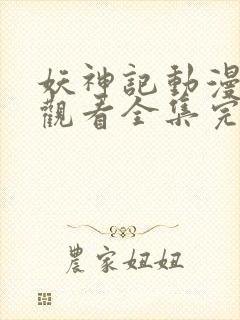 妖神記動漫
觀看全集完
農家妞妞